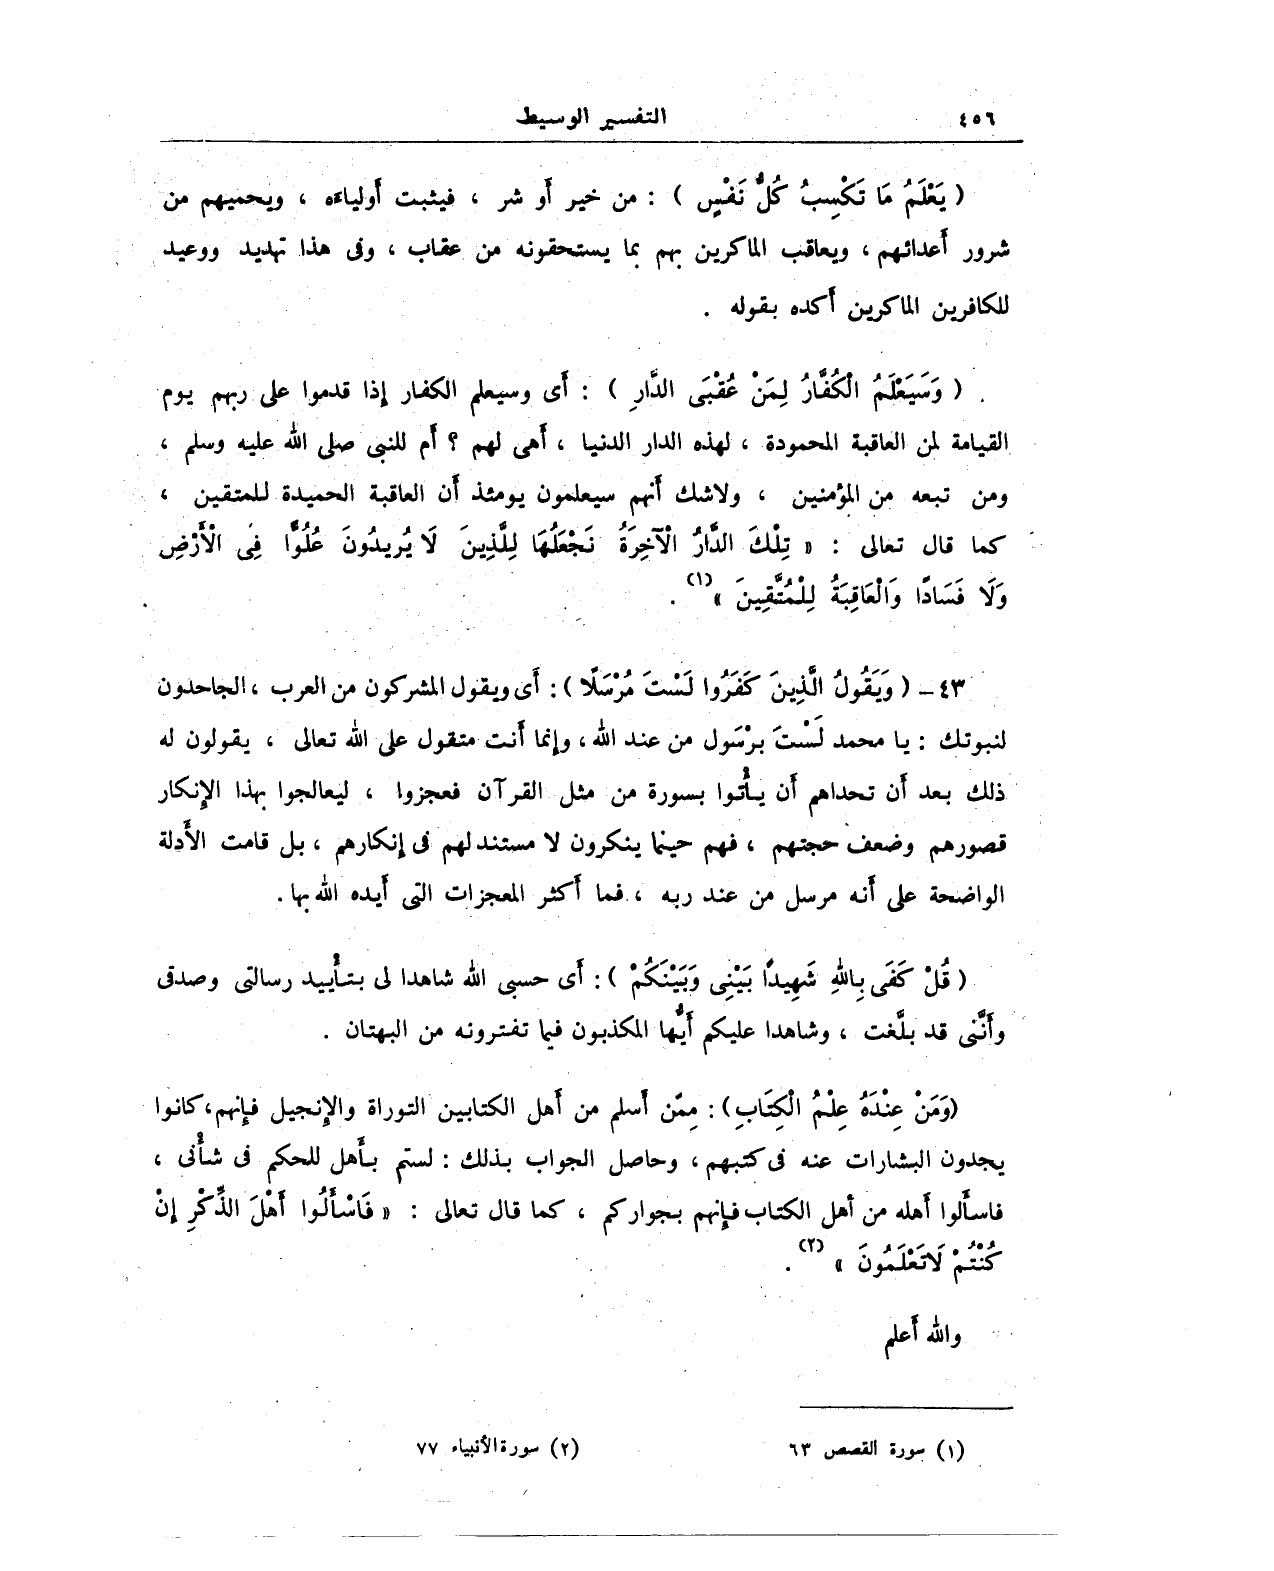 ٤٥٦ التفسير الوسيط
( يَعْلَمُ مَا تَكْسِبُ كُلُّ نَفْسٍ ) : من خير أو شر ، فيثبت أولياءه ، ويحميهم من
شرور أعدائهم ، ويعاقب الماكرين بهم بما يستحقونه من عقاب ، وفى هذا تهديد ووعيد
للكافرين الماكرين أكده بقوله .
( وَسَيَعْلَمُ الْكُفَّارُ لِمَنْ عُقْبَى الدَّارِ ) : أى وسيعلم الكفار إذا قدموا على ربهم يوم
القيامة لمن العاقبة المحمودة ، لهذه الدار الدنيا ، أهى لهم ؟ أم للنبى صلى الله عليه وسلم ،
ومن تبعه من المؤمنين ، ولاشك أنهم سيعلمون يومئذ أن العاقبة الحميدة للمتقين ،
كما قال تعالى : « تِلْكَ الدَّارُ الْآخِرَةُ نَجْعَلُهَا لِلَّذِينَ لَا يُرِيدُونَ عُلُوًّا فِى الْأَرْضِ
وَلَا فَسَادًا وَالْعَاقِبَةُ لِلْمُتَّقِينَ »(١) .
٤٣ - ( وَيَقُولُ الَّذِينَ كَفَرُوا لَسْتَ مُرْسَلًا ) : أى ويقول المشركون من العرب ، الجاحدون
لنبوتك : يا محمد لَسْتَ برْسَول من عند الله ، وإنما أنت متقول على الله تعالى ، يقولون له
ذلك بعد أن تحداهم أن يأْتوا بسورة من مثل القرآن فعجزوا ، ليعالجوا بهذا الإنكار
قصورهم وضعف حجتهم ، فهم حينما ينكرون لا مستند لهم فى إنكارهم ، بل قامت الأدلة
الواضحة على أنه مرسل من عند ربه ، فما أكثر المعجزات التى أيده الله بها .
( قُلْ كَفَى بِاللهِ شَهِيدًا بَيْنِى وَبَيْنَكُمْ ) : أى حسبى الله شاهدا لى بتأْييد رسالتى وصدقى
وأَنَّنى قد بلَّغت ، وشاهدا عليكم أَيُّها المكذبون فيما تفترونه من البهتان .
(وَمَنْ عِنْدَهُ عِلْمُ الْكِتَابِ) : مِمَّن أسلم من أهل الكتابين التوراة والإنجيل فإنهم، كانوا
يجدون البشارات عنه فى كتبهم ، وحاصل الجواب بذلك : لستم بأهل للحكم فى شأْنى ،
فاسألوا أهله من أهل الكتاب فإنهم بجواركم ، كما قال تعالى : « فَاسْأَلُوا أَهْلَ الذِّكْرِ إِنْ
كُنْتُمْ لَاتَعْلَمُونَ »(٢) .
والله أعلم
(١) سورة القصص ٦٣ (٢) سورة الأنبياء ٧٧